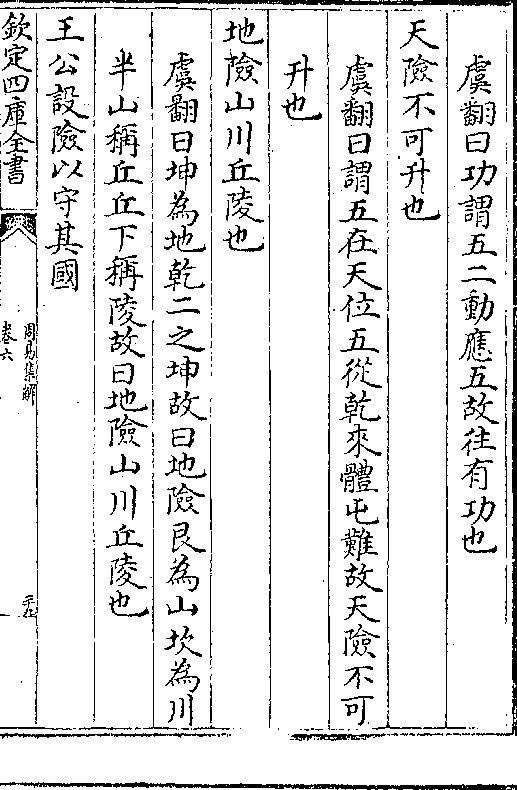 虞翻曰功謂五二動應五故往有功也
天險不可升也
虞翻曰謂五在天位五從乾來體屯難故天險不可
升也
地險山川丘陵也
虞翻曰坤為地乾二之坤故曰地險艮為山坎為川
半山稱丘丘下稱陵故曰地險山川丘陵也
王公設險以守其國
欽定四庫全書
周易集解
卷六